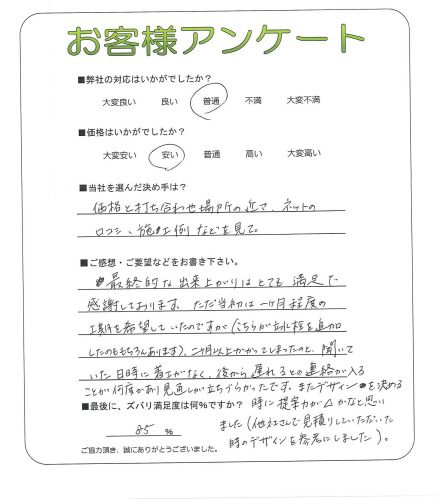 お客様アンケート
■弊社の対応はいかがでしたか？
大変良い 良い 普通 不満 大変不満
■価格はいかがでしたか？
大変安い 安い 普通 高い 大変高い
■当社を選んだ決め手は？
価格と打ち合わせ場所の近さ、ネットの
口コミ、施工例などを見て。
■ご感想・ご要望などをお書き下さい。
最終的な出来上がりはとても満足で
感謝しております。ただ当初は一ヶ月程度の
工期を希望していたのですが(こちらが立水栓を追加
したのももちろんあります)、二ヶ月以上かかってしまったのと、聞いて
いた日時に着工がなく、後から遅れるとの連絡が入る
ことが何度かあり見通しが立ちづらかったです。またデザインを決める
■最後に、ズバリ満足度は何％ですか？ 時に提案力が△かなと思い
85 ％ ました(他社さんで見積りしていただいた
ご協力頂き、誠にありがとうございました。 時のデザインを参考にしました)。